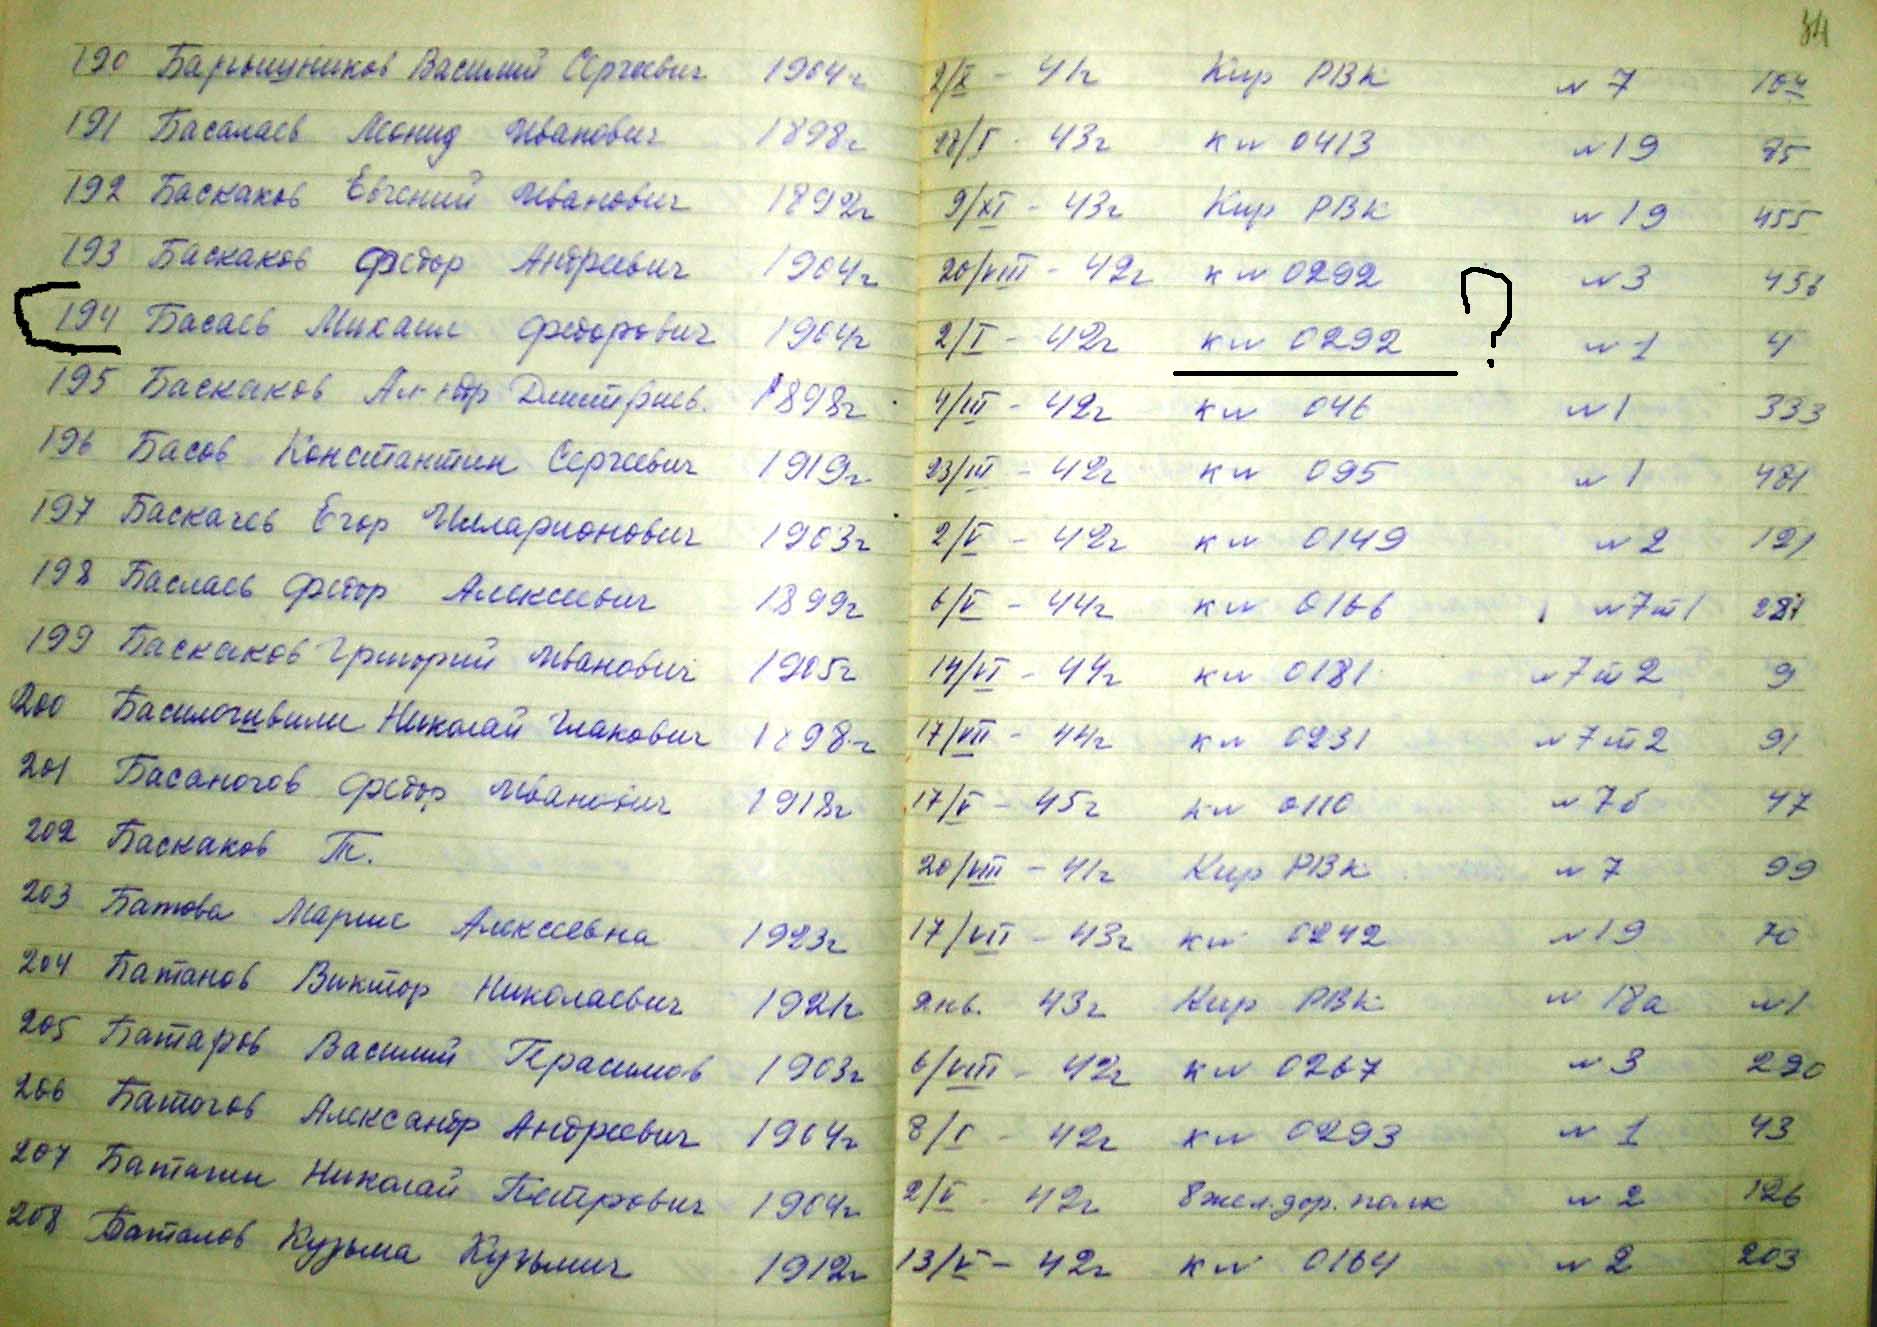 34
190 Барышников Василий Сергеевич 1904г 2/X - 41г Кир РВК №7 104
191 Басалаев Леонид Иванович 1898г 28/I - 43г к№ 0413 №19 75
192 Баскаков Евгений Иванович 1892г 9/XI - 43г Кир РВК №19 455
193 Баскаков Федор Андреевич 1904г 20/VIII - 42г к№ 0292 №3 456
194 Басаев Михаил Федорович 1904г 2/I - 42г к№ 0292 ? №1 4
195 Баскаков Ал-ндр Дмитриев. 1898г 4/III - 42г к№ 046 №1 333
196 Басов Константин Сергеевич 1919г 23/III - 42г к№ 095 №1 481
197 Баскачев Егор Илларионович 1903г 2/V - 42г к№ 0149 №2 121
198 Баслаев Федор Алексеевич 1899г 6/V - 44г к№ 0166 №7т1 281
199 Баскаков Григорий Иванович 1905г 14/VI - 44г к№ 0181 №7т2 9
200 Басилочивили Николай 1898г 17/VII - 44г к№ 0231 №7т2 91
201 Басаногов Федор Иванович 1918г 17/V - 45г к№ 0110 №7б 47
202 Баскаков Т. 20/VIII - 41г Кир РВК №7 99
203 Батова Мария Алексеевна 1923г 17/VII - 43г к№ 0242 №19 70
204 Батанов Виктор Николаевич 1921г янв. 43г Кир РВК №18а №1
205 Батаров Василий Герасимов 1903г 6/VIII - 42г к№ 0267 №3 220
206 Батогов Александр Андреевич 1904г 8/I - 42г к№ 0293 №1 43
207 Батагин Николай Петрович 1904г 2/V - 42г 8 жел.дор. полк №2 126
208 Баталов Кузьма Кузьмич 1912г 13/V - 42г к№ 0164 №2 203